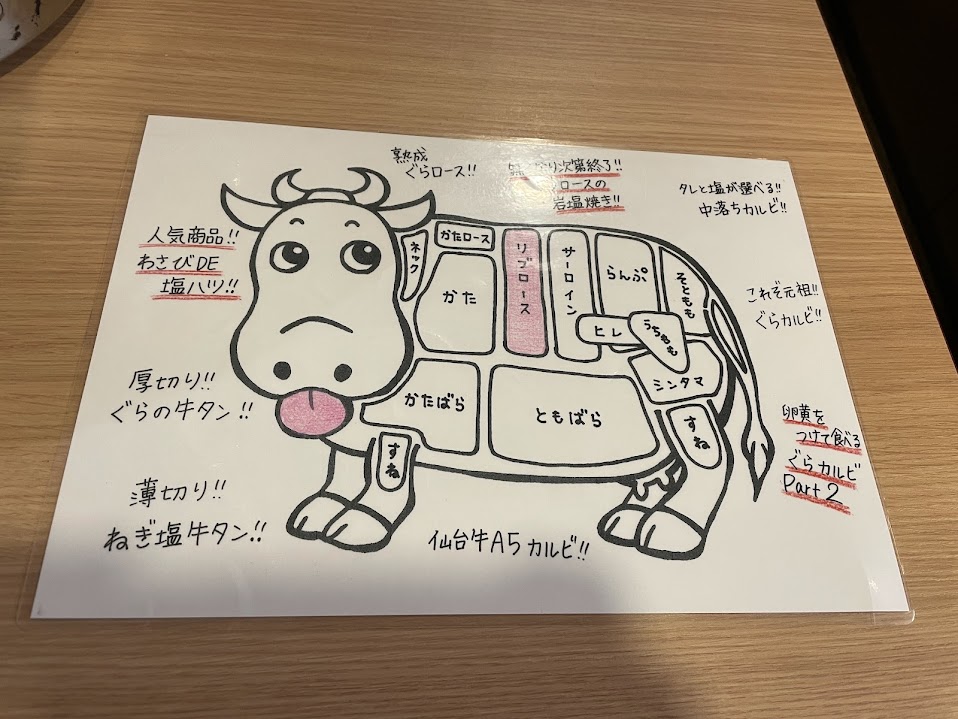 熟成
ぐらロース!!
り次第終了!!
ロースの
岩塩焼き!!
タレと塩が選べる!!
中落ちカルビ!!
人気商品!!
わさびDE
塩ハツ!!
これぞ元祖!!
ぐらカルビ!!
厚切り!!
ぐらの牛タン!!
卵黄を
つけて食べる
ぐらカルビ
Part2
薄切り!!
ねぎ塩牛タン!!
仙台牛A5カルビ!!
ネック
かたロース
かた
リブロース
サーロイン
らんぷ
そともも
ヒレ
うちもも
シンタマ
かたばら
ともばら
すね
すね